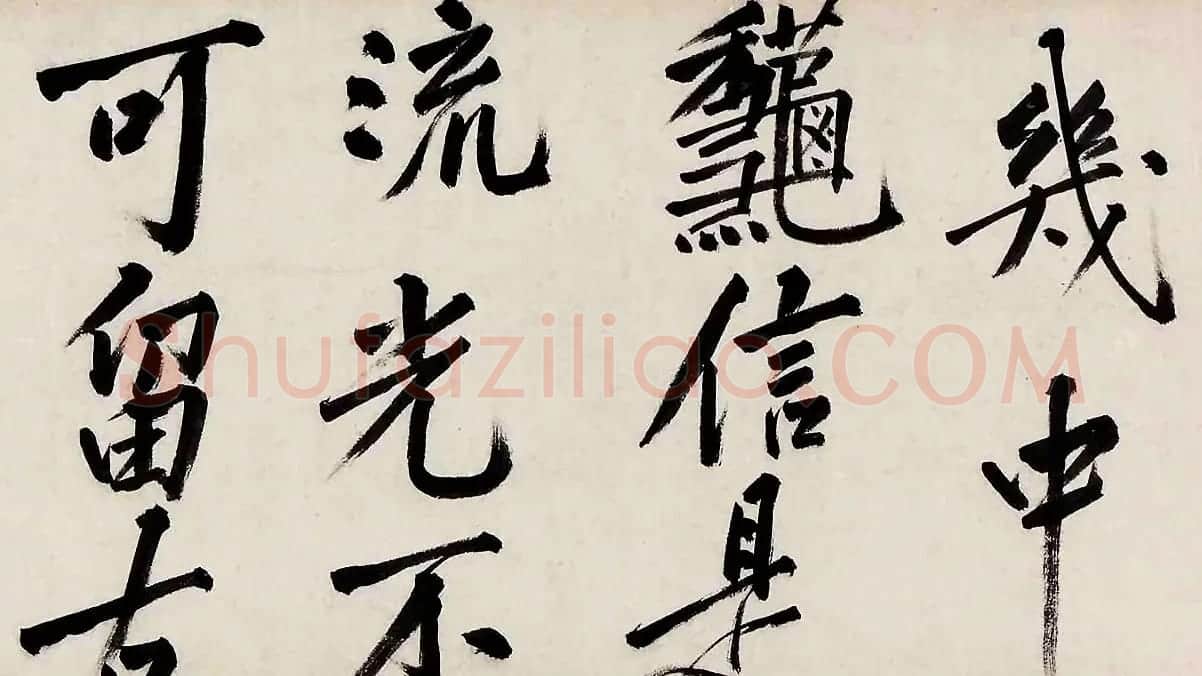 幾中
信是
流光不
可留古
Shufaziliao.COM